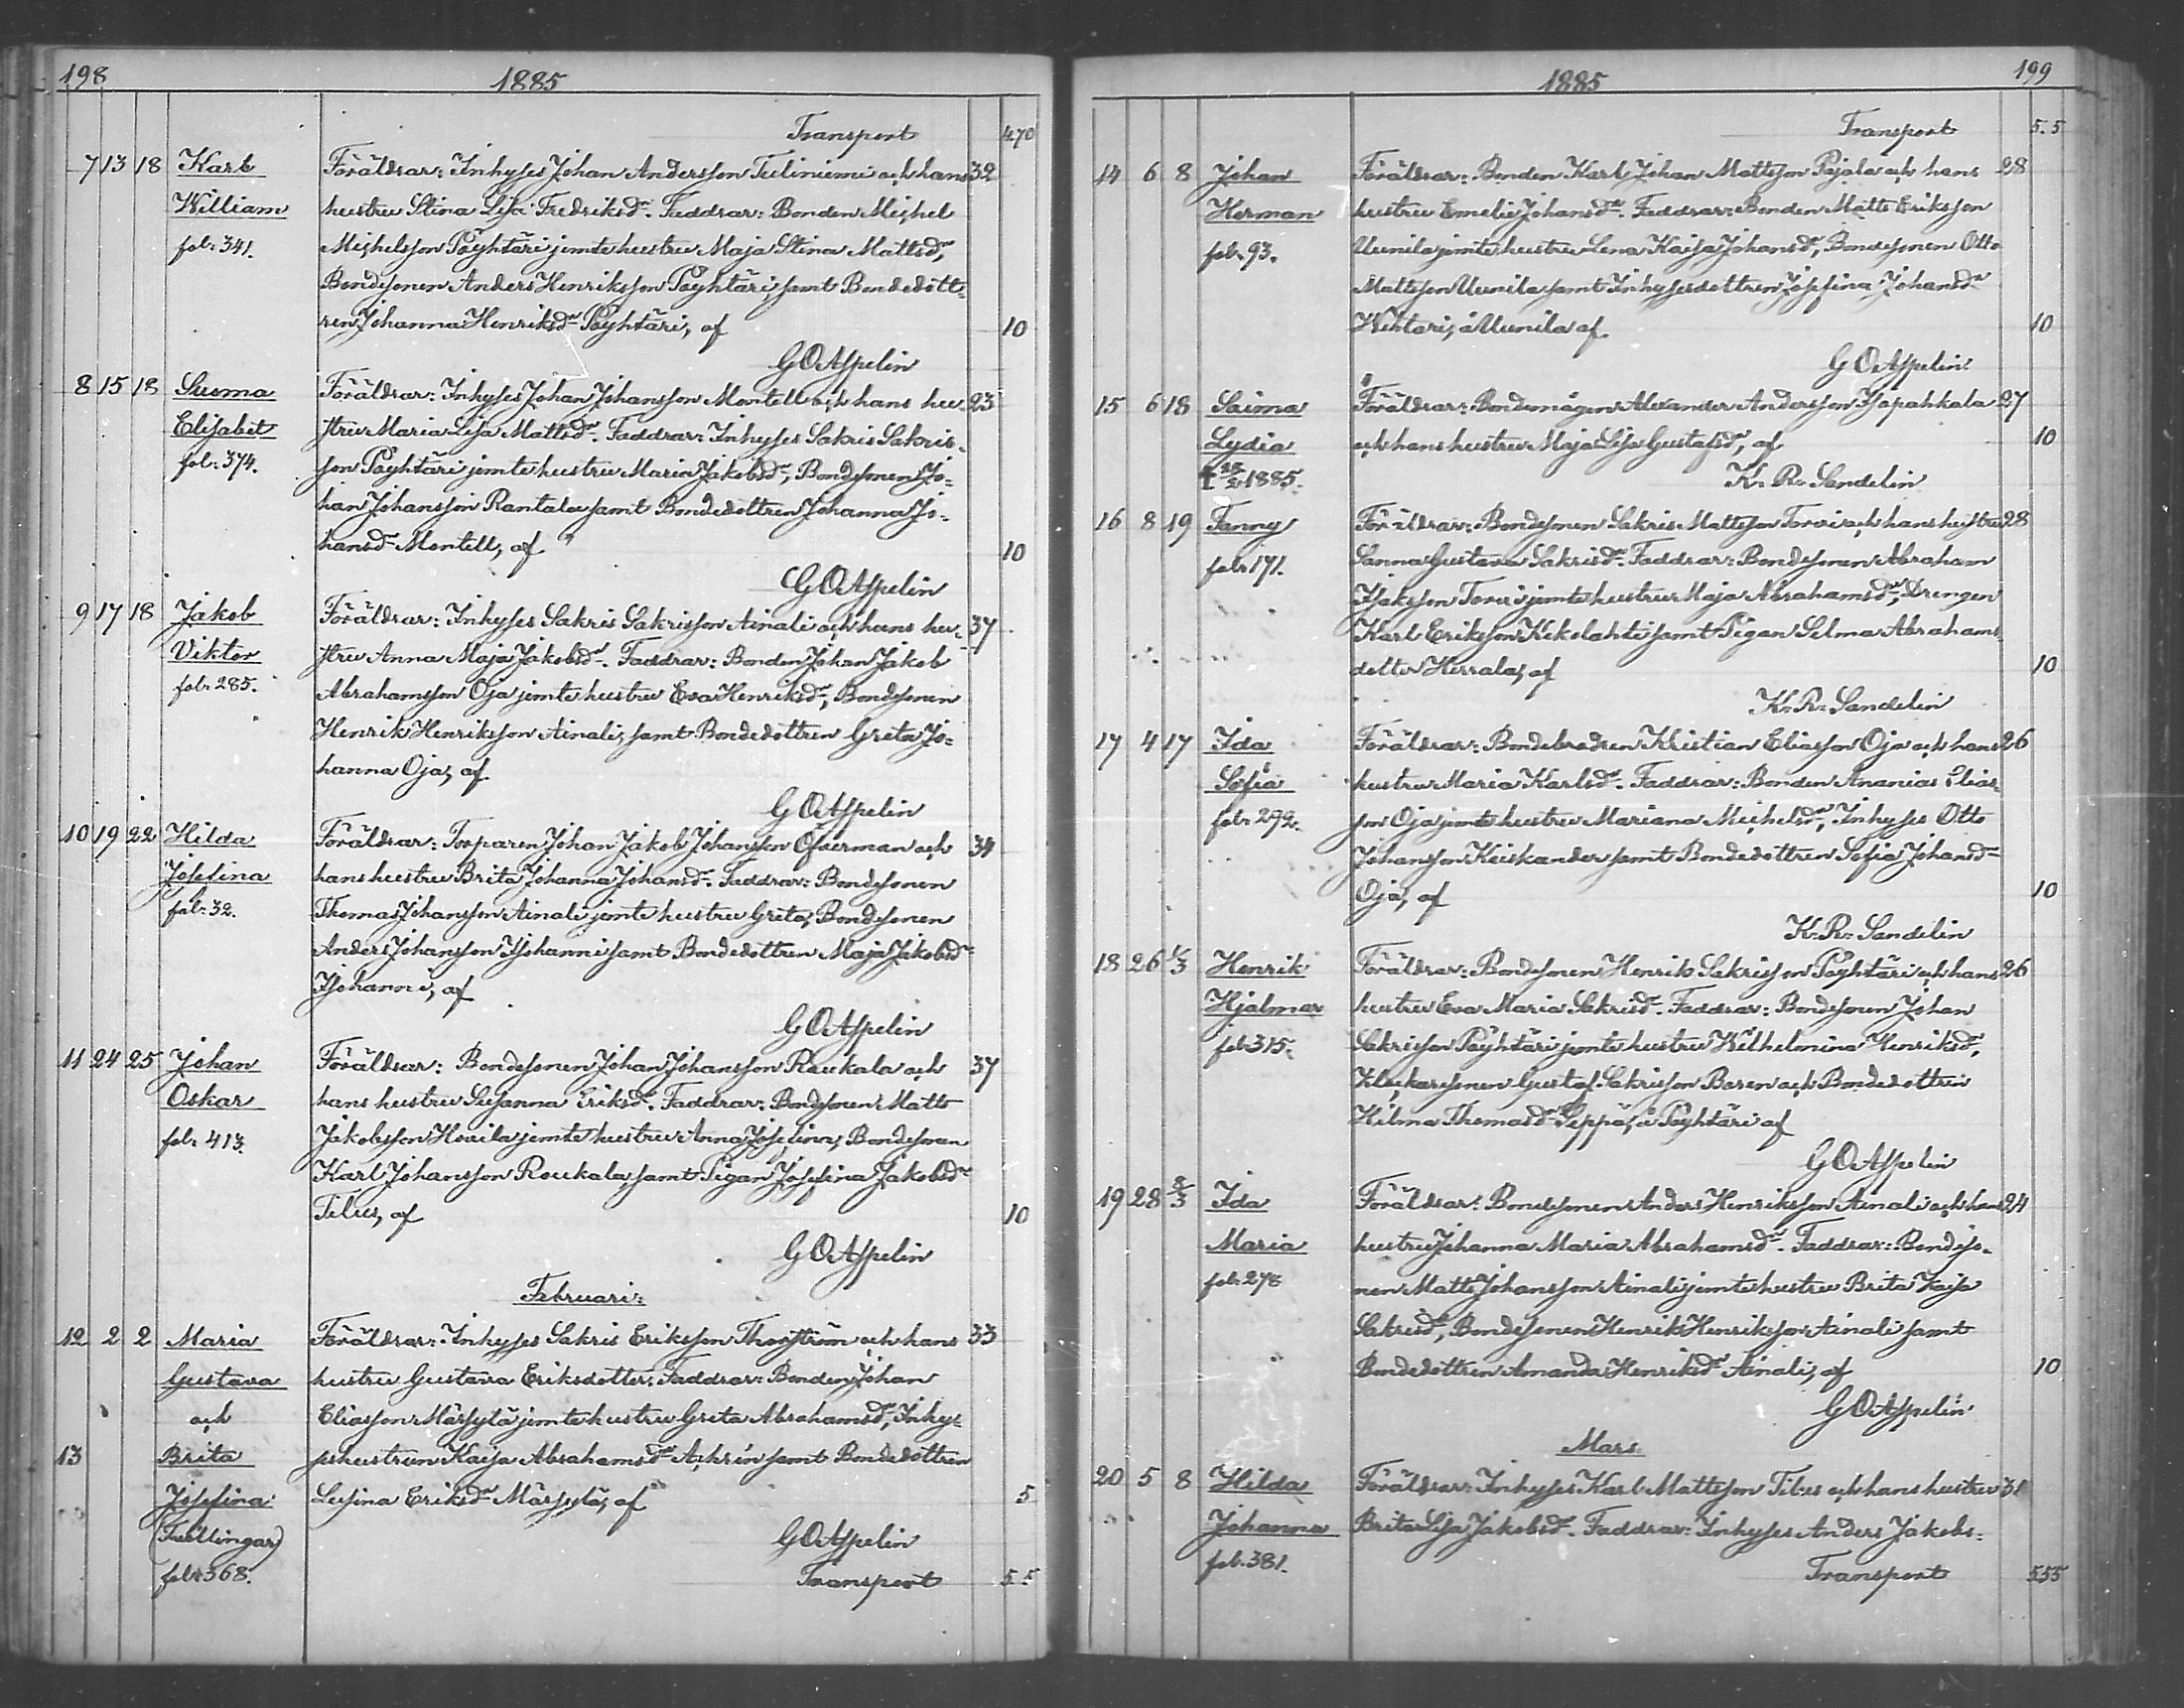 198
1885
Transport 470
7 13 18 Karl Föräldrar: Inhyses Johan Andersson Tuliniemi och hans 32
William hustru Stina Lisa Fredriksdr. Faddrar: Bonden Michel
fol. 341. Michelsson Pöyhtäri jemte hustru Maja Stina Mattsdr,
Bondesonen Anders Henriksson Pöyhtäri, samt Bondedött-
ren Johanna Henriksdr Pöyhtäri, af 10
G O Appelin
8 15 18 Susma Föräldrar: Inhyses Johan Johansson Montell och hans hu- 23
Elisabet stru Maria Lisa Mattsdr. Faddrar: Inhyses Sakris Sakris-
fol. 374. son Pöyhtäri jemte hustru Maria Jakobsdr, Bondesonen Jo-
han Johansson Rantala samt Bondedottren Johanna Jo-
hansdr Montell, af 10
G O Appelin
9 17 18 Jakob Föräldrar: Inhyses Sakris Sakrisson Ainali och hans hu- 37
Viktor stru Anna Maja Jakobsdr. Faddrar: Bonden Johan Jakob
fol. 285. Abrahamsson Oja jemte hustru Eva Henriksdr, Bondesonen
Henrik Henriksson Ainali, samt Bondedottren Greta Jo-
hanna Oja, af
G O Appelin
10 19 22 Hilda Föräldrar: Torparen Johan Jakob Johansson Öfverman och 34
Josefina hans hustru Brita Johanna Johansdr. Faddrar: Bondesonen
fol. 32. Thomas Johansson Ainali jemte hustru Greta, Bondesonen
Anders Johansson Isohanni samt Bondedottren Maja Jakobsdr
Isohanni, af
G O Appelin
11 24 25 Johan Föräldrar: Bondesonen Johan Johansson Roukala och 37
Oskar hans hustru Susanna Eriksdr. Faddrar: Bondesonen Matts
fol. 413. Jakobsson Hourila jemte hustru Anna Josefina, Bondesonen
Karl Johansson Roukala, samt Pigan Josefina Jakobsdr
Tilus, af 10
G O Appelin
Februari:
12 2 2 Maria Föräldrar: Inhyses Sakris Eriksson Thorström och hans 33
Gustava hustru Gustava Eriksdotter. Faddrar: Bonden Johan
och Eliasson Märsylä jemte hustru Greta Abrahamsdr, Inhy-
13 Brita seshustrun Kaisa Abrahamsdr Achrén samt Bondedottren
Josefina Lusina Eriksdr Märsylä, af 5
(Tvillingar) G O Appelin
fol. 368. Transport 5.5
199
1885
Transport 5.5
14 6 8 Johan Föräldrar: Bonden Karl Johan Mattsson Pajala och hans 28
Herman hustru Emelie Johansdr. Faddrar: Bonden Matts Eriksson
fol. 93. Uunila jemte hustru Lena Kaisa Johansdr, Bondesonen Otto
Mattsson Uunila samt Inhysesdottren Josefina Johansdr
Wiktari, å Uunila af 10
G O Appelin
15 6 18 Saima Föräldrar: Bondemågen Alexander Andersson Isopahkala 27
Lydia och hans hustru Maja Lisa Gustafsdr, af 10
1885. K. R. Sandelin
16 8 19 Fanny Föräldrar: Bondesonen Sakris Mattsson Torvi och hans hustru 28
fol. 171. Sanna Gustava Sakrisdr. Faddrar: Bondesonen Abraham
Isaksson Torvi jemte hustru Maja Abrahamsdr, Drengen
Karl Eriksson Kekolahti samt Pigan Selma Abrahams-
dotter Herrala, af 10
K. R. Sandelin
17 4 17 Ida Föräldrar: Bondebrodren Kristian Eliasson Oja och hans 26
Sofia hustru Maria Karlsdr. Faddrar: Bonden Ananias Elias-
fol. 292. son Oja jemte hustru Mariana Michelsdr, Inhyses Otto
Johansson Keiskander samt Bondedottren Sofia Johansdr
Oja, af 10
K. R. Sandelin
18 26 1/3 Henrik Föräldrar: Bondesonen Henrik Sakrisson Pöyhtäri och hans 26
Hjalmar hustru Eva Maria Sakrisdr. Faddrar: Bondesonen Johan
fol. 315. Sakrisson Pöyhtäri jemte hustru Wilhelmina Henriksdr,
Klockarsonen Gustaf Sakrisson Boren och Bondedottren
Hilma Thomasdr Seppä, å Pöyhtäri af
G O Appelin
19 28 8/3 Ida Föräldrar: Bondesonen Anders Henriksson Ainali och hans 24
Maria hustru Johanna Maria Abrahamsdr. Faddrar: Bondeso-
fol. 278 nen Matts Johansson Ainali jemte hustru Brita Kaisa
Sakrisdr, Bondesonen Henrik Henriksson Ainali samt
Bondedottren Amanda Henriksdr Ainali, af 10
G O Appelin
Mars
20 5 8 Hilda Föräldrar: Inhyses Karl Mattsson Tilus och hans hustru 31
Johanna Brita Lisa Jakobsdr. Faddrar: Inhyses Anders Jakobs-
fol. 381. Transport 555